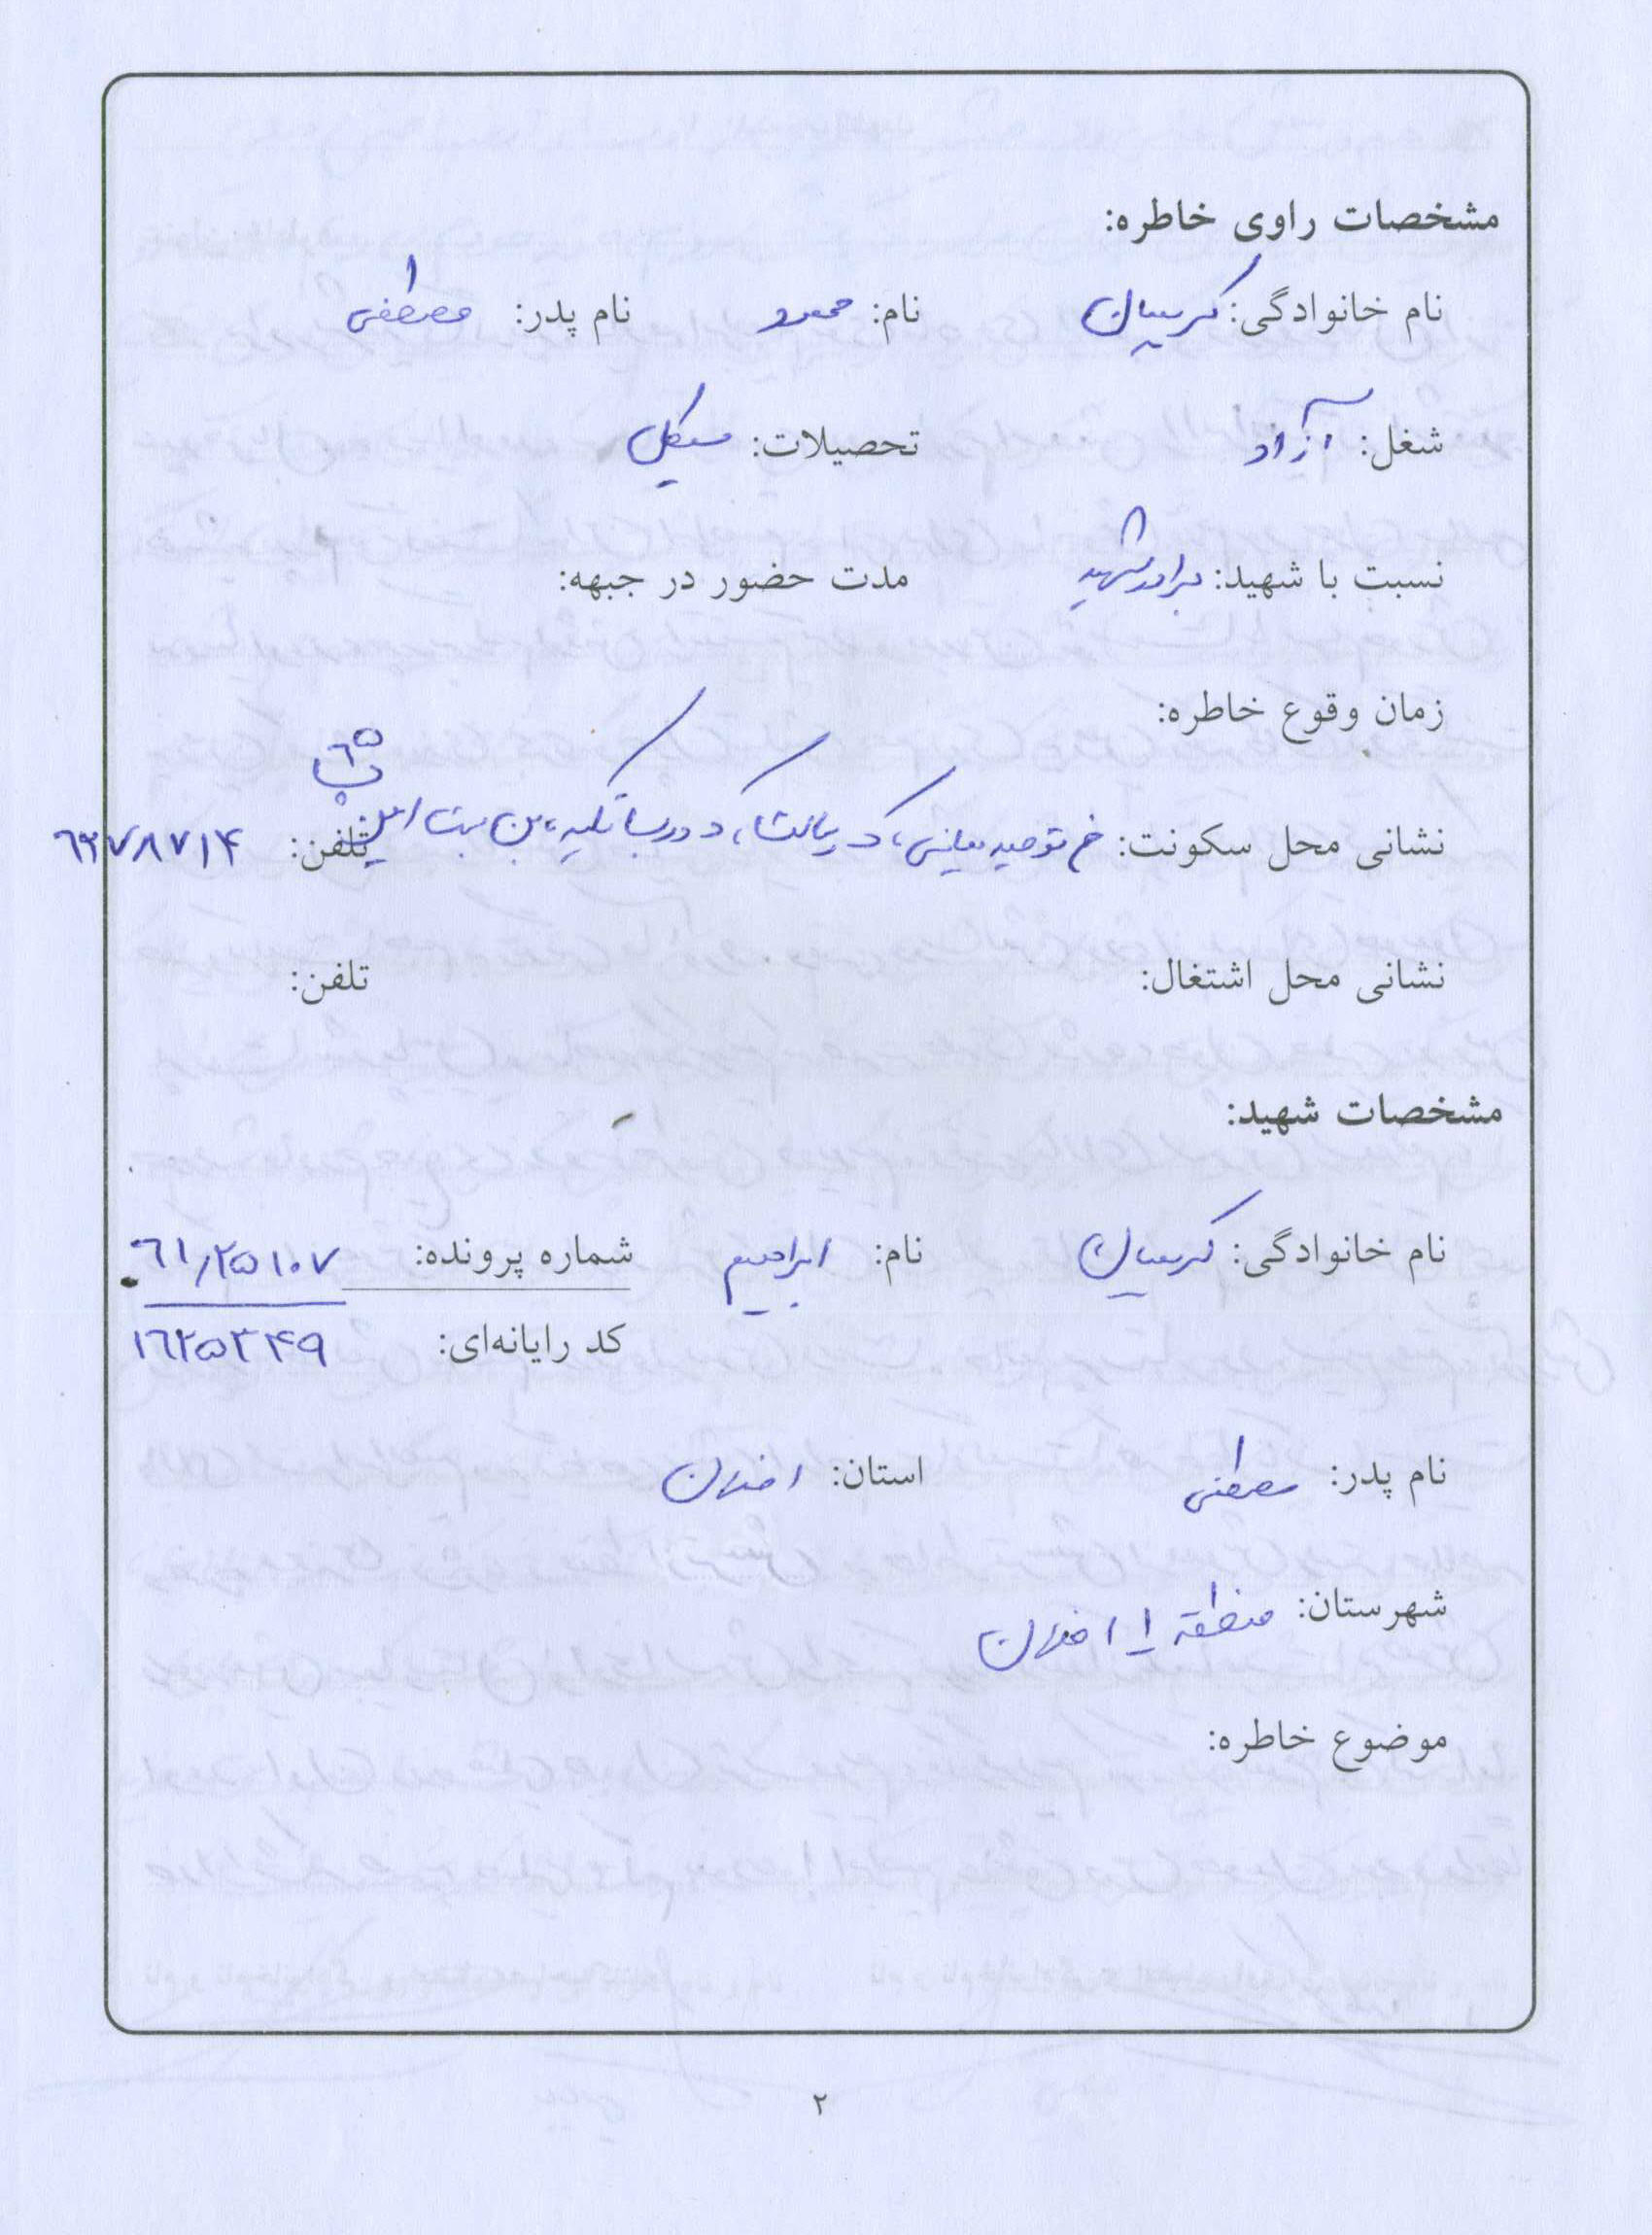 مشخصات راوی خاطره:
نام خانوادگی: کریمیان نام: محمود نام پدر: مصطفی
شغل: آزاد تحصیلات: سیکل
نسبت با شهید: برادر شهید مدت حضور در جبهه:
زمان وقوع خاطره:
نشانی محل سکونت: خ توحید میانی، ک تلفن: ٦٢٧٨٧١۴
نشانی محل اشتغال: تلفن:
مشخصات شهید:
نام خانوادگی: کریمیان نام: ابراهیم شماره پرونده: ٦١/٢۵١٠٧
کد رایانه‌ای: ١٦٢۵٣۴٩
نام پدر: مصطفی استان: اصفهان
شهرستان: منطقه ١ اصفهان
موضوع خاطره:
٢